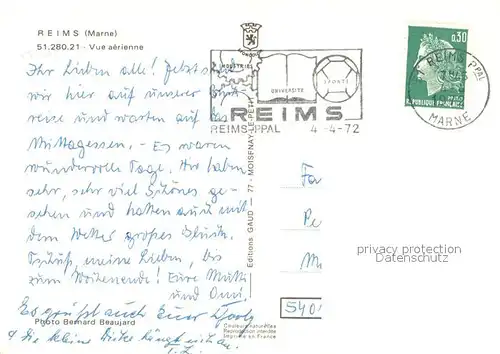 REIMS (Marne)
51.280.21 - Vue aérienne
Ihr Lieben alle! Jetzt
wir hier auf unserer
reise und warten auf das
Mittagessen. - Es waren
wundervolle Tage. Wir haben
sehr, sehr viel Schönes ge-
sehen und hatten auch mit
dem Wetter großes Glück.
Tschüß, meine Lieben, bis
zum Wochenende! Eure Mutti
und Omi.
Es grüßt auch Euer
Die kleine
Photo Bernard Beaujard
Editions GAUD - 77 - MOISENAY-LE-PETIT
Couleurs naturelles
Reproduction interdite
Imprimé en France
INDUSTRIES
UNIVERSITÉ
SPORTS
REIMS
REIMS PPAL 4-4-72
0,30
REPUBLIQUE FRANÇAISE
REIMS PPAL
MARNE
Fa
Pe
M
540
privacy protection
Datenschutz